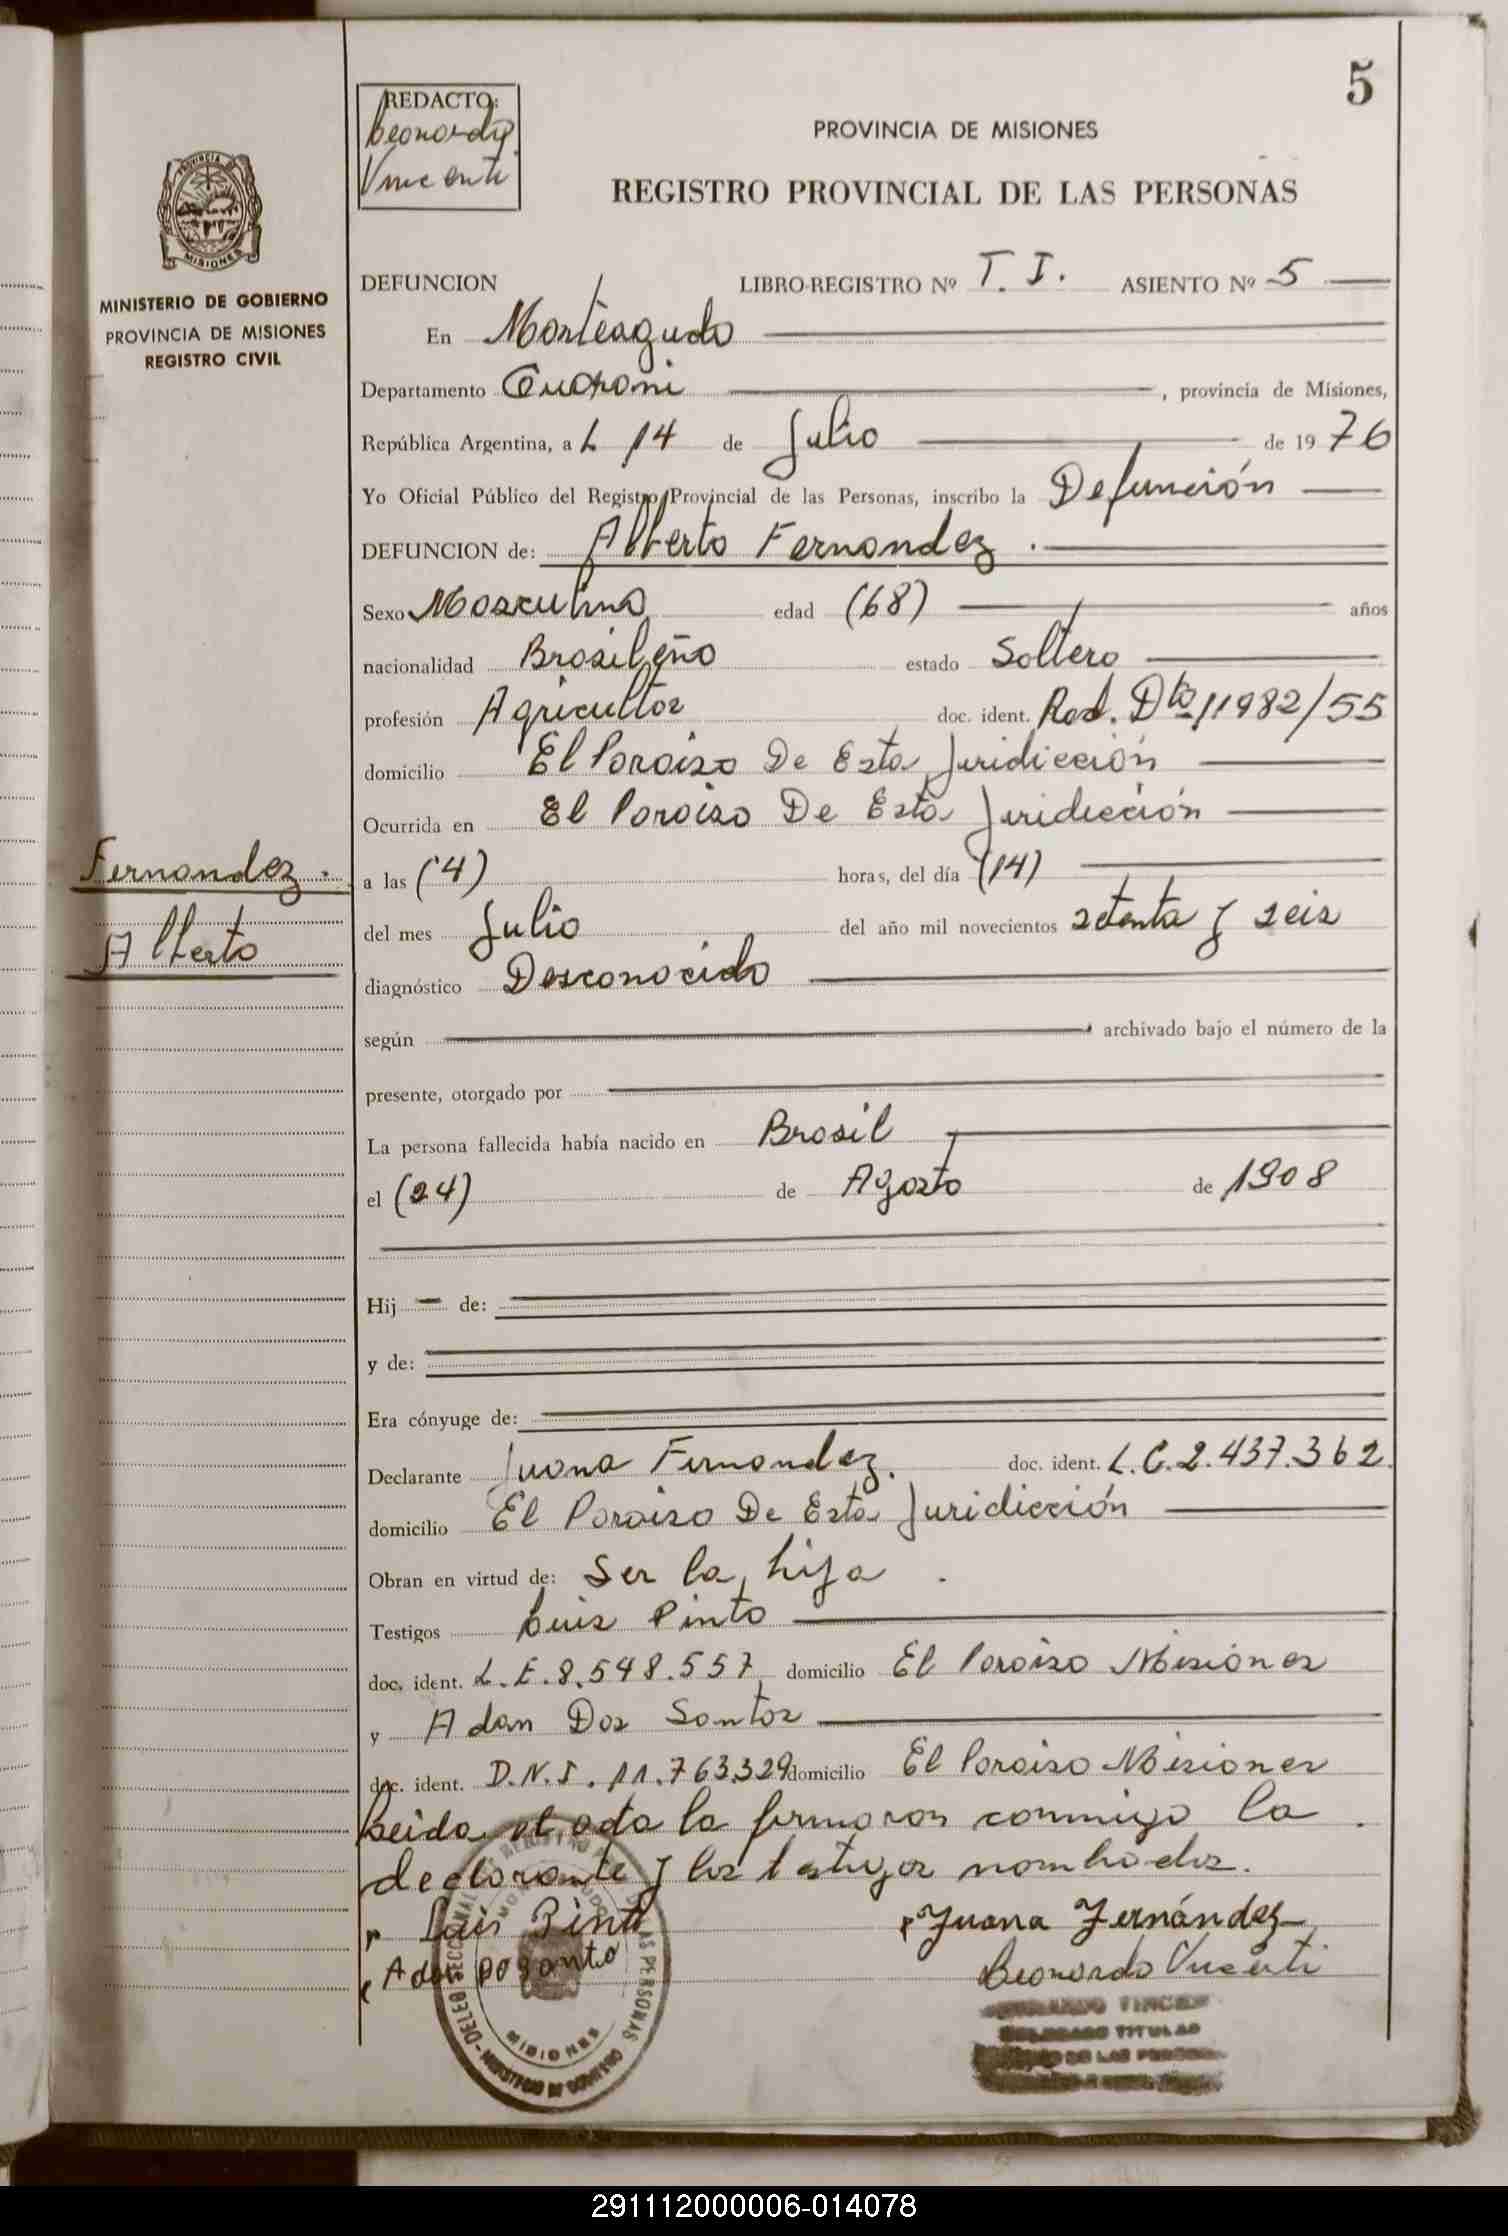 5
REDACTO:
Leonardo
Vincenti
PROVINCIA DE MISIONES
REGISTRO PROVINCIAL DE LAS PERSONAS
PROVINCIA DE
MISIONES
MINISTERIO DE GOBIERNO
PROVINCIA DE MISIONES
REGISTRO CIVIL
DEFUNCION LIBRO-REGISTRO Nº T. I. ASIENTO Nº 5
En Monteagudo
Departamento Guarani, provincia de Misiones,
República Argentina, a L 14 de Julio de 1976
Yo Oficial Público del Registro Provincial de las Personas, inscribo la Defunción
DEFUNCION de: Alberto Fernandez.
Sexo Masculino edad (68) años
nacionalidad Brasileño estado Soltero
profesión Agricultor doc. ident. Rad. Dto 11982/55
domicilio El Paraiso De Esta Juridicción
Ocurrida en El Paraiso De Esta Juridicción
Fernandez.
Alberto
a las (4) horas, del día (14)
del mes Julio del año mil novecientos setenta y seis
diagnóstico Desconocido
según , archivado bajo el número de la
presente, otorgado por
La persona fallecida había nacido en Brasil
el (24) de Agosto de 1908
Hij — de:
y de:
Era cónyuge de:
Declarante Juana Fernandez. doc. ident. L.C.2.437.362.
domicilio El Paraiso De Esta Juridicción
Obran en virtud de: Ser la hija.
Testigos Luis Pinto
doc. ident. L.E.8.548.557 domicilio El Paraiso Misiones
y Adan Dos Santos
doc. ident. D.N.I. 11.763.329 domicilio El Paraiso Misiones
Leida el acta la firmaron conmigo la
declarante y los testigos nombrados.
Luis Pinto Juana Fernández
Adan do santo Leonardo Vincenti
MISIONES
DELEGADO TITULAR
DE LAS PERSONAS
291112000006-014078